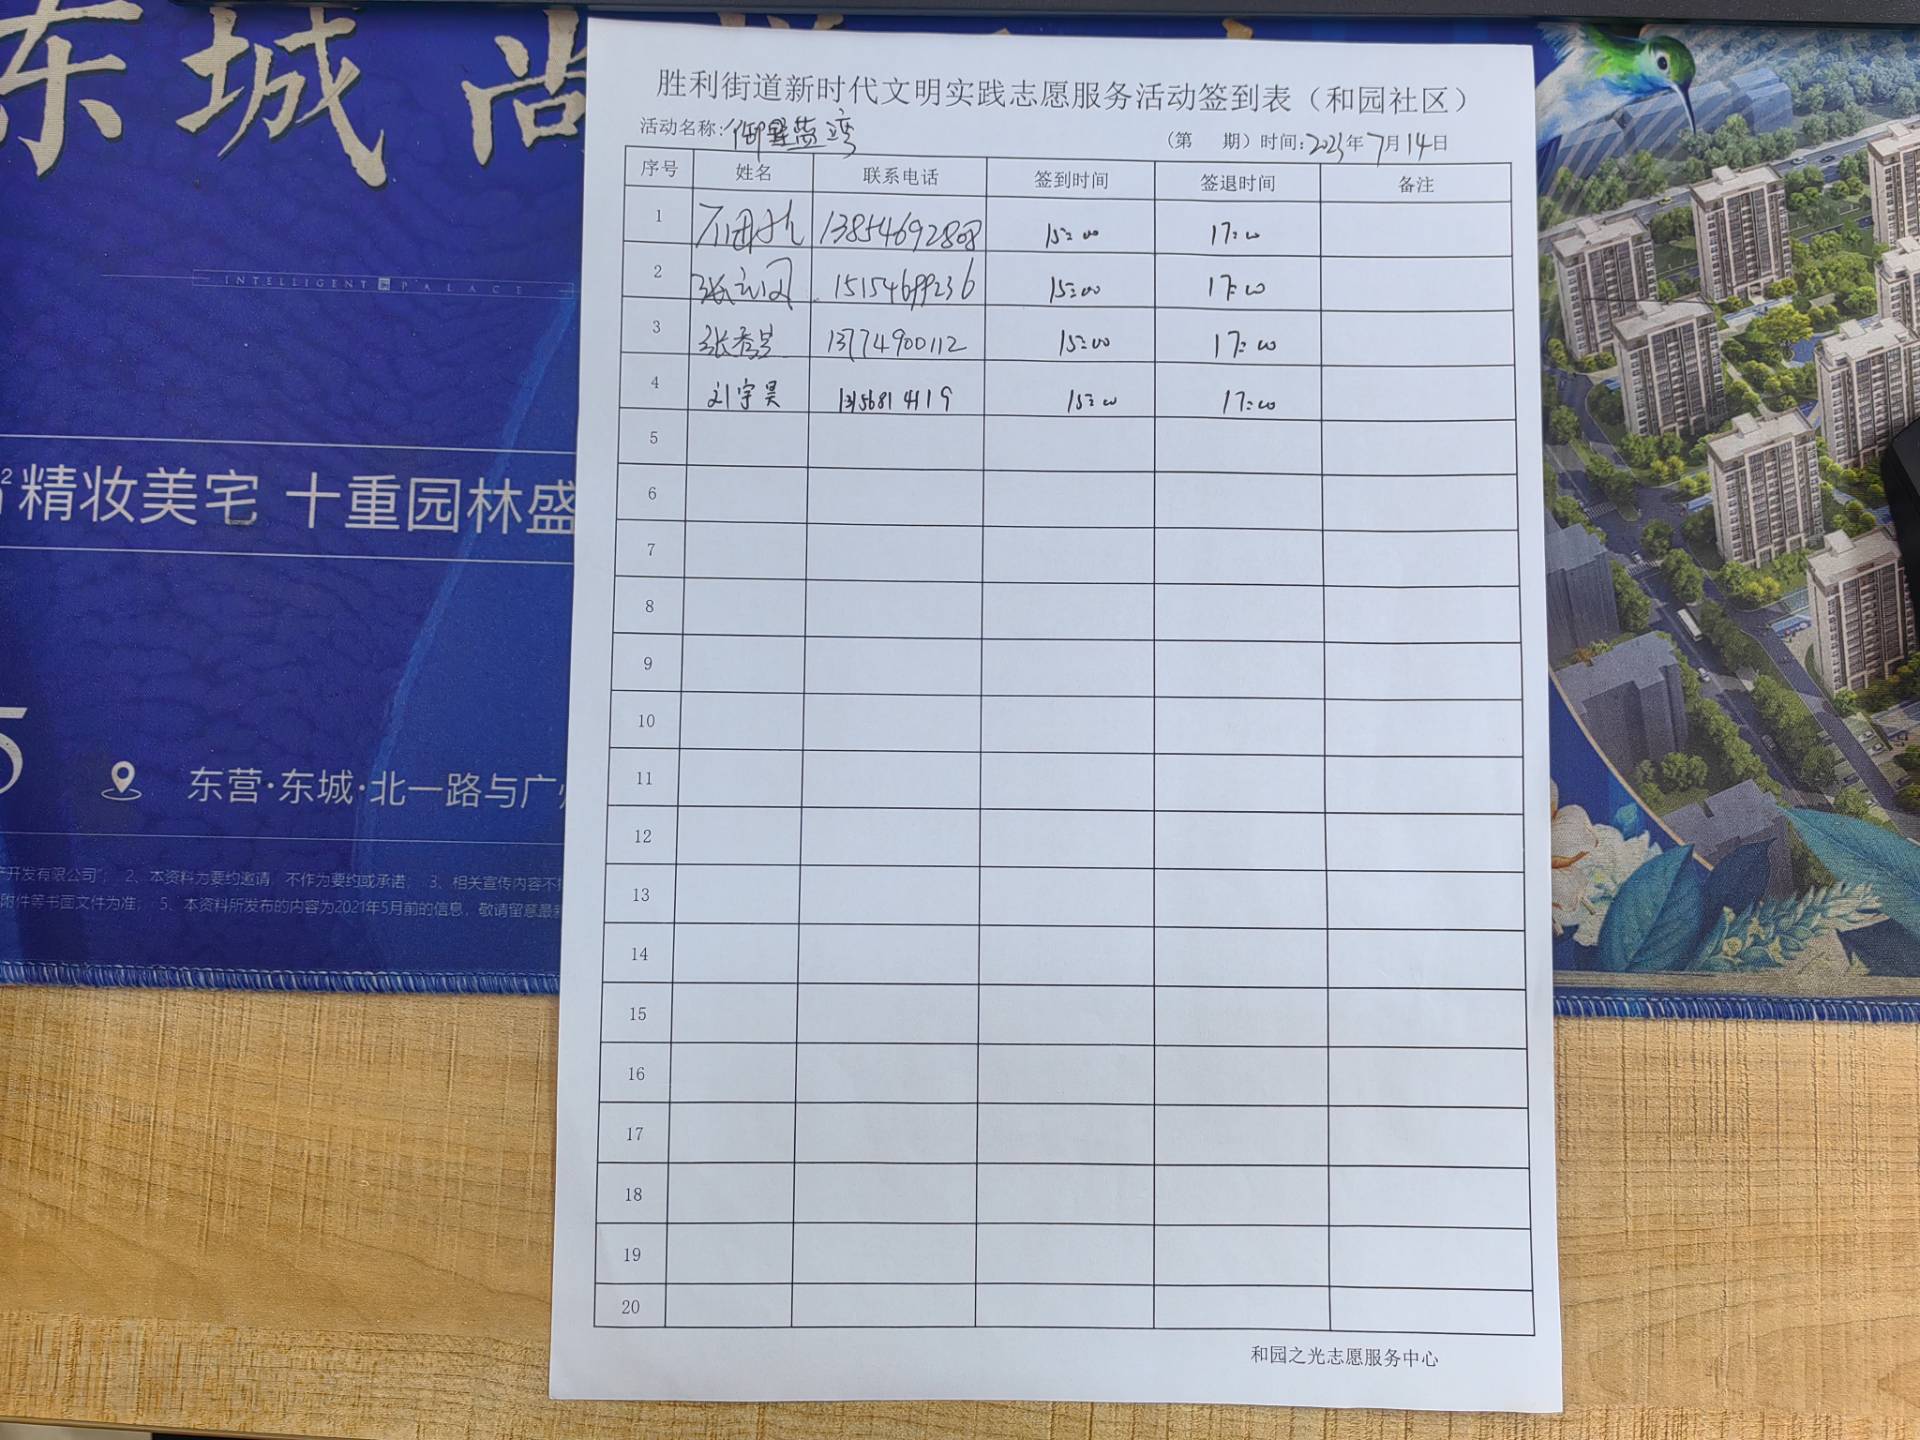 东城尚
INTELLIGENT PALACE
精妆美宅 十重园林盛
东营·东城·北一路与广
产开发有限公司"; 2、本资料为要约邀请,不作为要约或承诺; 3、相关宣传内容不
附件等书面文件为准; 5、本资料所发布的内容为2021年5月前的信息,敬请留意最新
胜利街道新时代文明实践志愿服务活动签到表(和园社区)
活动名称: 蓝湾
(第 期)时间:2023年7月14日
序号 姓名 联系电话 签到时间 签退时间 备注
1 13854692808 15:00 17:00
2 15154699236 15:00 17:00
3 13774900112 15:00 17:00
4 刘宇昊 15:00 17:00
5
6
7
8
9
10
11
12
13
14
15
16
17
18
19
20
和园之光志愿服务中心